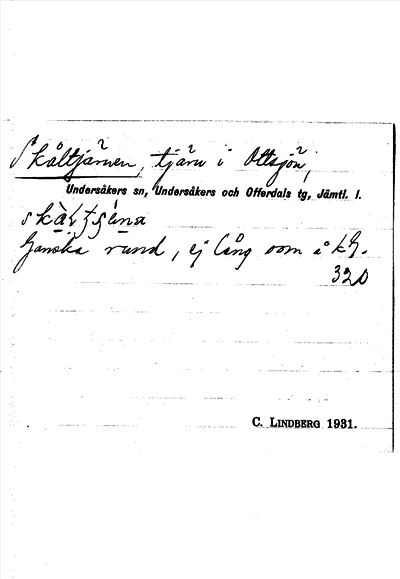 Skåltjärnen, tjärn i Ottsjön,
Undersåkers sn, Undersåkers och Offerdals tg, Jämtl. l.
Ganska rund, ej lång som å kG.
320
C. LINDBERG 1931.